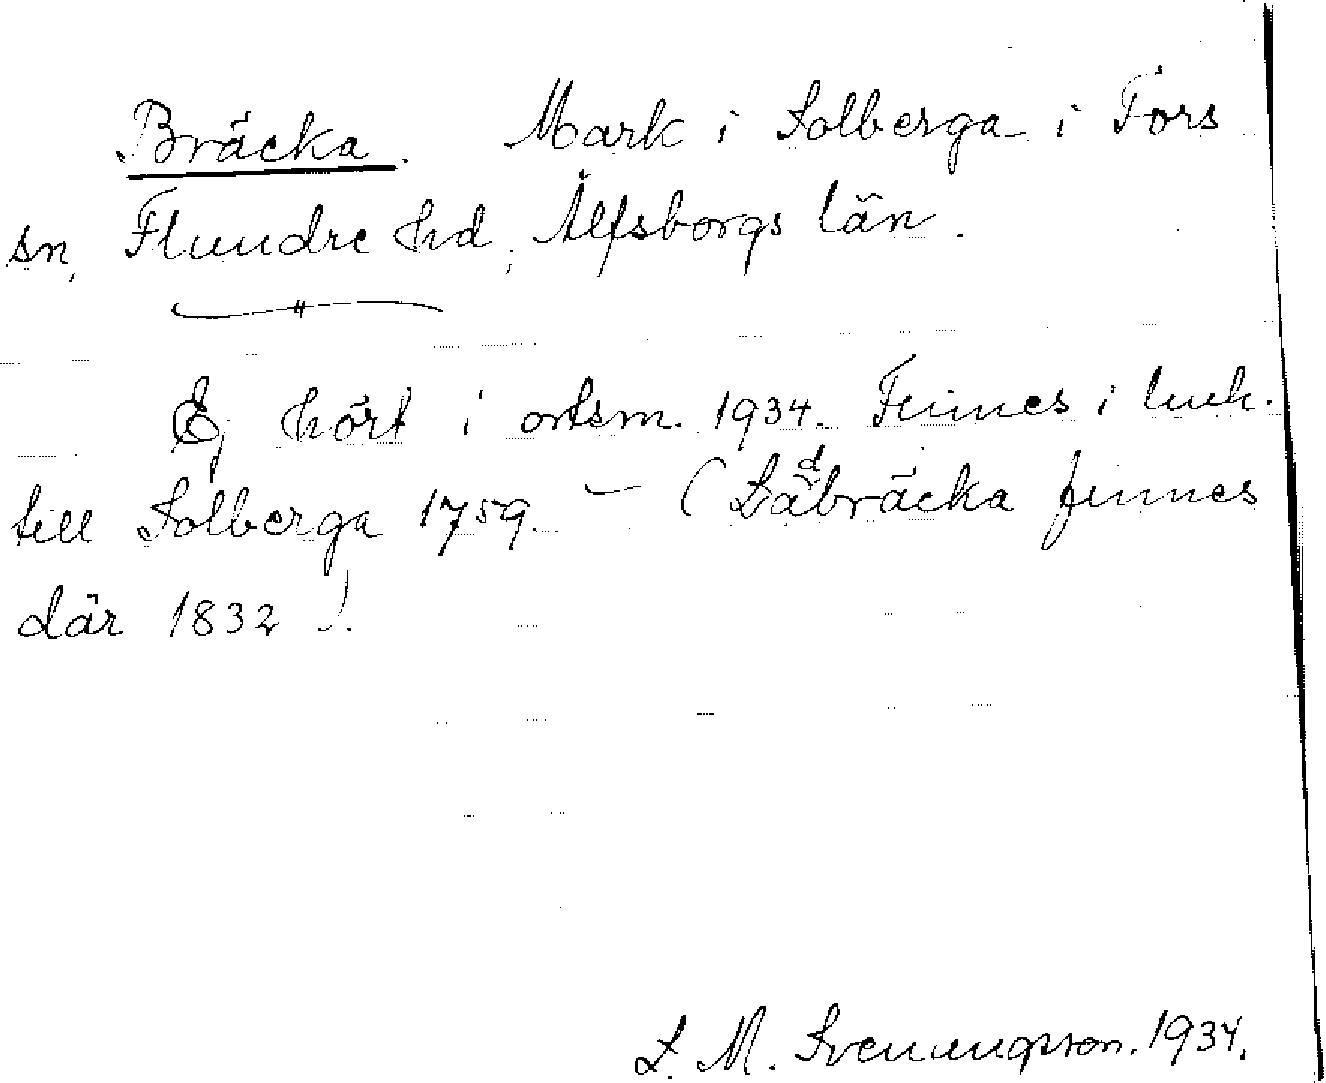 Bräcka. Mark i Solberga i Fors
sn, Flundre hd, Älfsborgs län.
Ej hört i ortsm. 1934. Finnes i
till Solberga 1759. – (Ladbräcka finnes
där 1832).
L. M. Svenungsson. 1934.